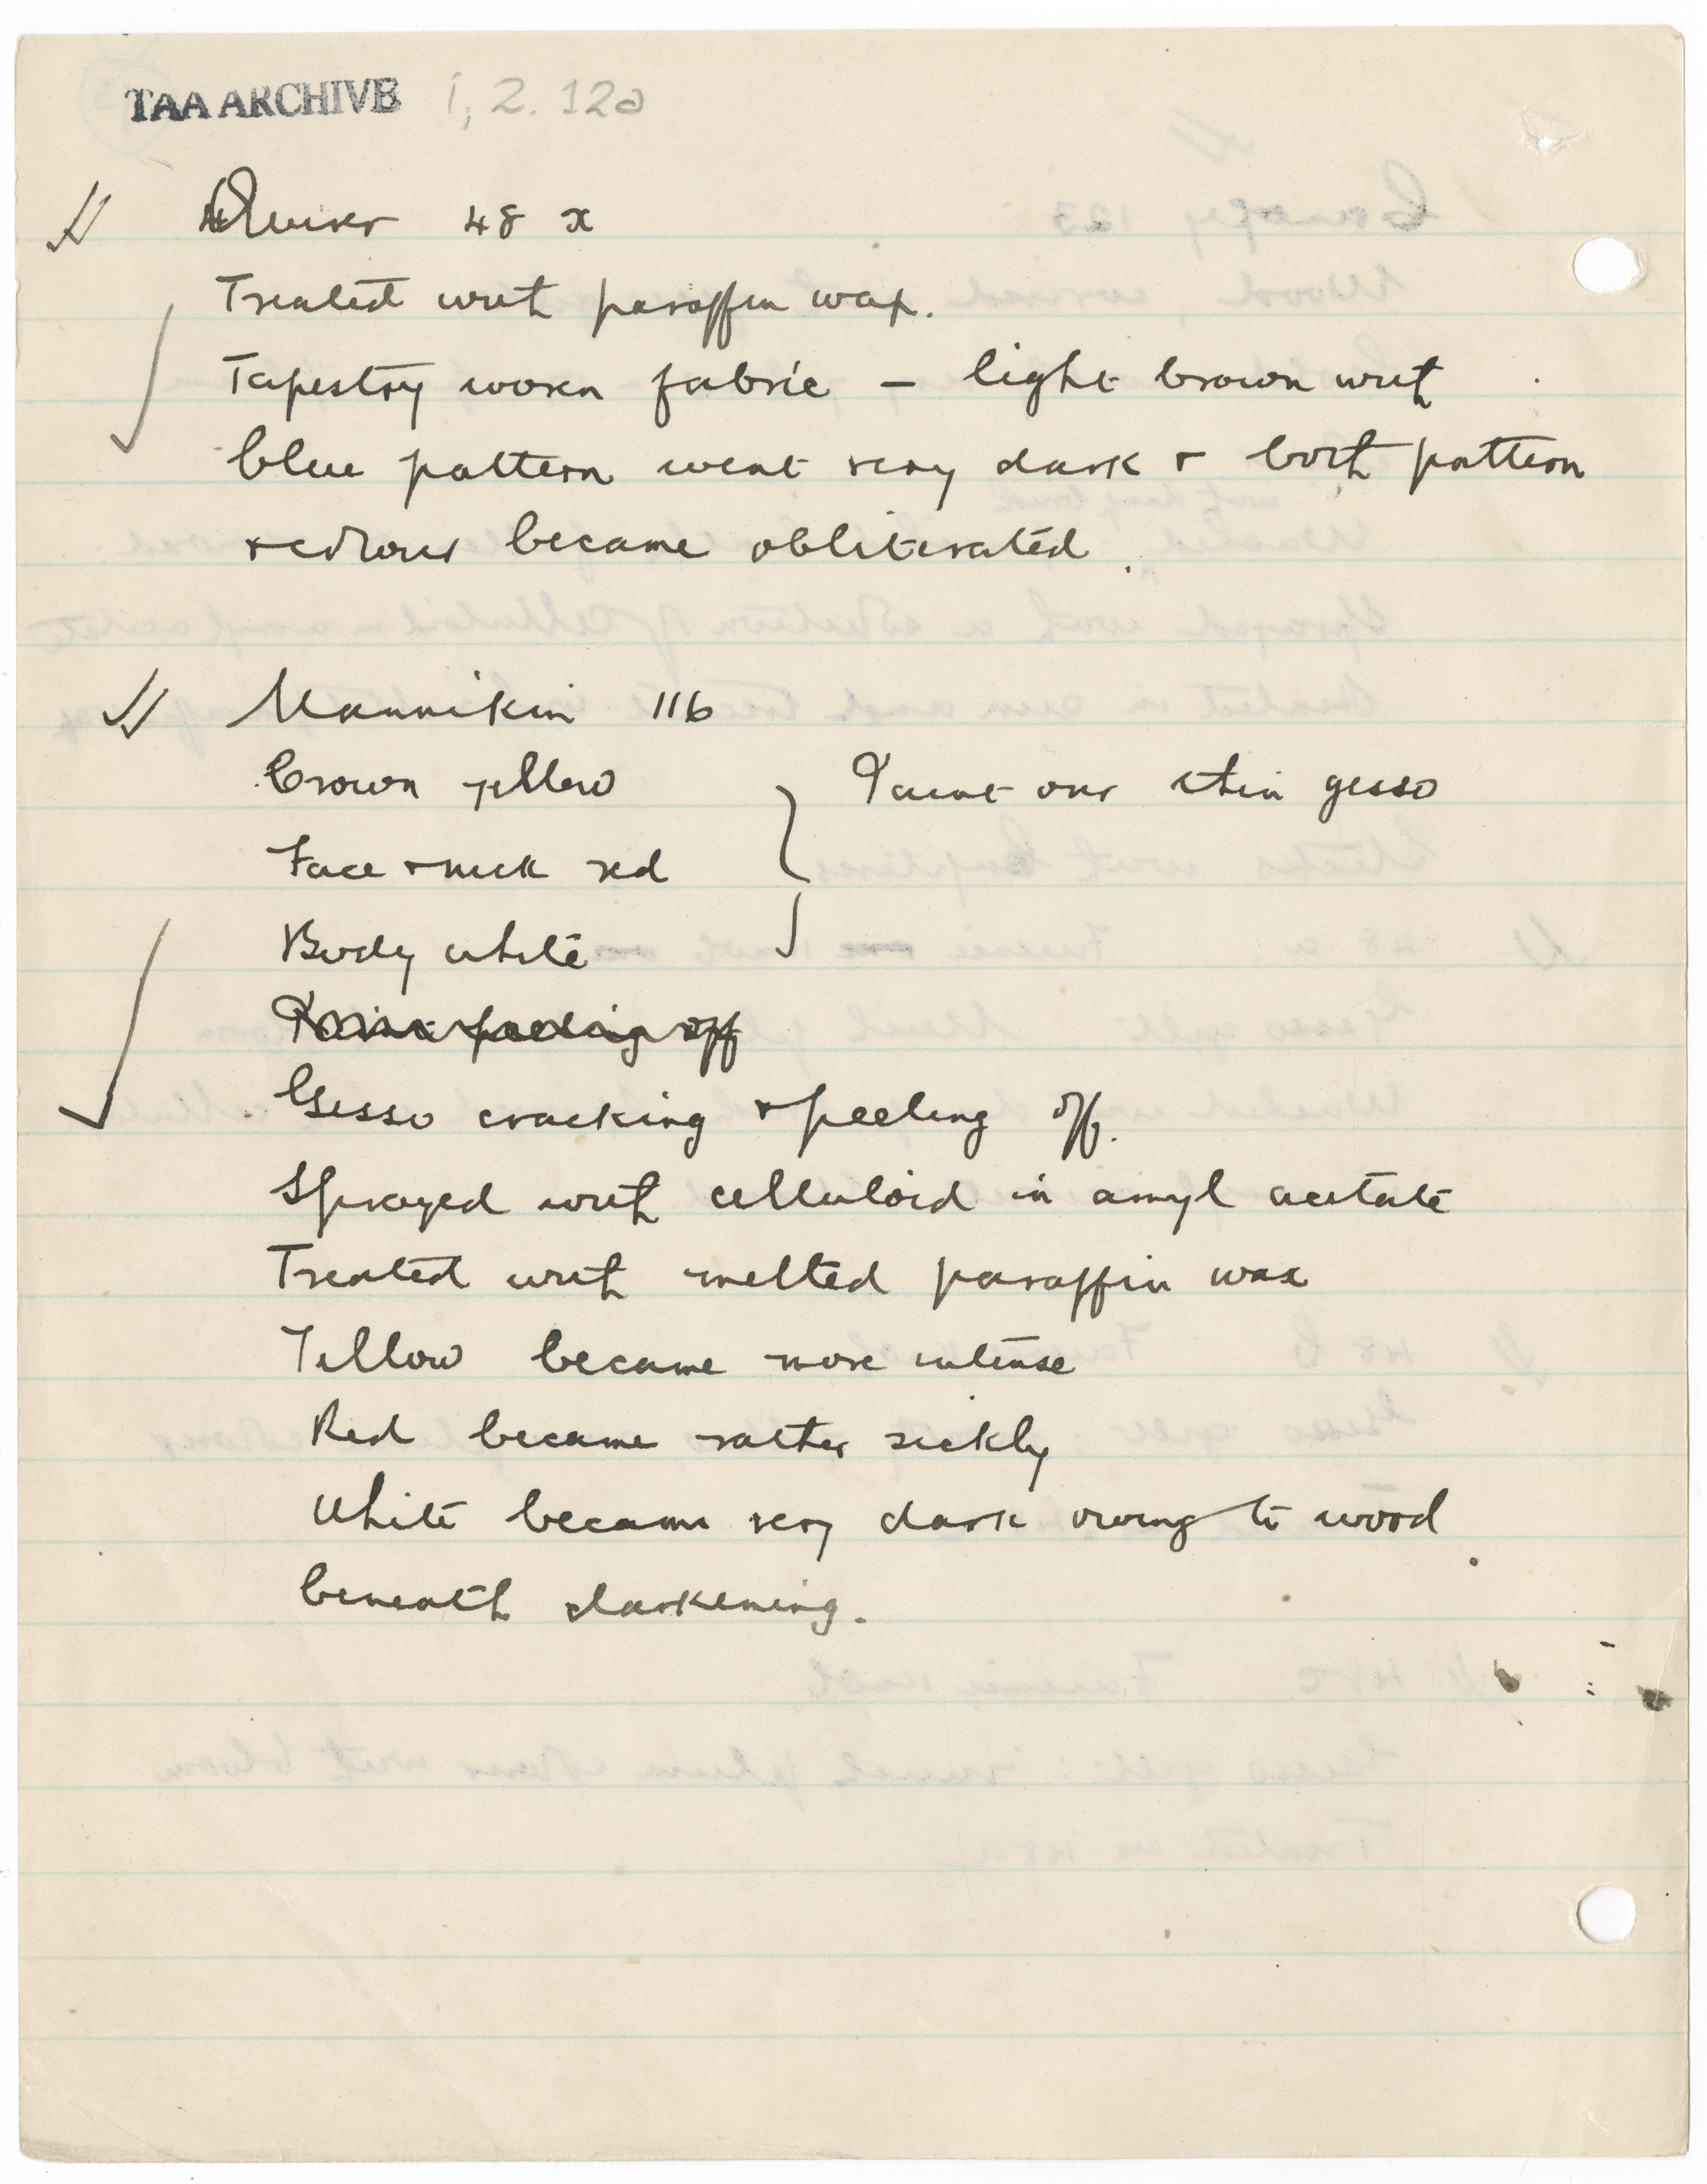 TAA ARCHIVE 1, 2. 12a
Quiver 48 x
Treated with paraffin wax.
Tapestry woven fabric – light brown with
blue pattern went very dark & both pattern
& colours became obliterated.
Mannikin 116
Crown yellow
Face & neck red
Body white
Paint over thin gesso
Paint peeling off
Gesso cracking & peeling off.
Sprayed with celluloid in amyl acetate
Treated with melted paraffin wax
Yellow became more intense
Red became rather sickly
White became very dark owing to wood
beneath darkening.